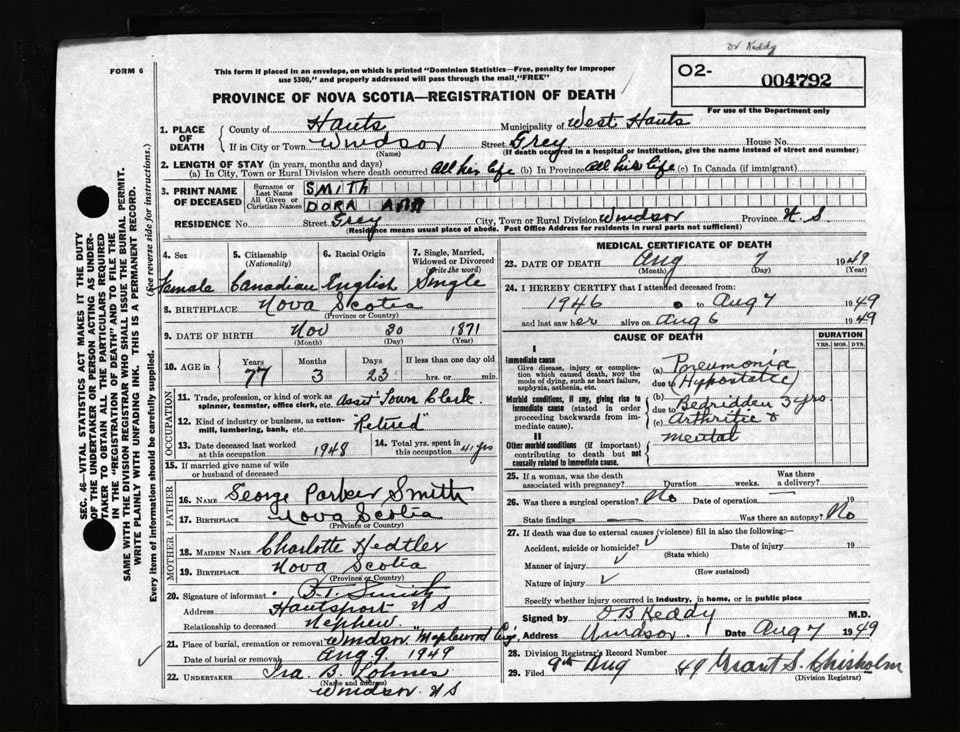 Dr Keddy
FORM 6
This form if placed in an envelope, on which is printed "Dominion Statistics—Free, penalty for improper
use $300," and properly addressed will pass through the mail, "FREE"
O2- 004792
For use of the Department only
PROVINCE OF NOVA SCOTIA—REGISTRATION OF DEATH
1. PLACE OF DEATH County of Hants Municipality of West Hants
If in City or Town Windsor Street Grey House No.
(Name) (If death occurred in a hospital or institution, give the name instead of street and number)
2. LENGTH OF STAY (in years, months and days)
(a) In City, Town or Rural Division where death occurred all his life (b) In Province All his life (c) In Canada (if immigrant)
3. PRINT NAME OF DECEASED Surname or Last Name SMITH
All Given or Christian Names DORA ANN
RESIDENCE No. Street Grey City, Town or Rural Division Windsor Province N.S.
(Residence means usual place of abode. Post Office Address for residents in rural parts not sufficient)
4. Sex 5. Citizenship (Nationality) 6. Racial Origin 7. Single, Married, Widowed or Divorced (Write the word)
Female Canadian English Single
8. BIRTHPLACE Nova Scotia
(Province or Country)
9. DATE OF BIRTH Nov 30 1871
(Month) (Day) (Year)
10. AGE in Years Months Days If less than one day old
77 3 23 hrs. or min.
OCCUPATION
11. Trade, profession or kind of work as spinner, teamster, office clerk, etc. Asst Town Clerk
12. Kind of industry or business, as cotton-mill, lumbering, bank, etc. "Retired"
13. Date deceased last worked at this occupation 1948 14. Total yrs. spent in this occupation 41 yrs
15. If married give name of wife or husband of deceased
FATHER
16. NAME George Parker Smith
17. BIRTHPLACE Nova Scotia
(Province or Country)
MOTHER
18. MAIDEN NAME Charlotte Hedtler
19. BIRTHPLACE Nova Scotia
(Province or Country)
20. Signature of informant B.T. Smith
Address Hantsport N S
Relationship to deceased Nephew
21. Place of burial, cremation or removal Windsor "Maplewood
Date of burial or removal Aug 9. 1949
22. UNDERTAKER Ira B. Lohnes
(Name and address)
Windsor N S
MEDICAL CERTIFICATE OF DEATH
23. DATE OF DEATH Aug 7 1949
(Month) (Day) (Year)
24. I HEREBY CERTIFY that I attended deceased from:
1946 to Aug 7 1949
and last saw her alive on Aug 6 1949
CAUSE OF DEATH DURATION
YRS. MOS. DYS.
I
Immediate cause
Give disease, injury or complication which caused death, NOT the mode of dying, such as heart failure, asphyxia, asthenia, etc.
(a) Pneumonia
due to Hypostatic
Morbid conditions, if any, giving rise to immediate cause (stated in order proceeding backwards from immediate cause).
(b)
due to Bedridden 3 yrs.
(c) Arthritic &
mental
II
Other morbid conditions (if important) contributing to death but not causally related to immediate cause.
25. If a woman, was the death associated with pregnancy? Duration weeks. Was there a delivery?
26. Was there a surgical operation? No Date of operation 19
State findings Was there an autopsy? No
27. If death was due to external causes (violence) fill in also the following:—
Accident, suicide or homicide? Date of injury 19
(State which)
Manner of injury
(How sustained)
Nature of injury
Specify whether injury occurred in industry, in home, or in public place
Signed by O B Keddy M.D.
Address Windsor. Date Aug 7 1949
28. Division Registrar's Record Number
29. Filed 9th Aug 49 Grant S. Chisholm
(Division Registrar)
SEC. 46—VITAL STATISTICS ACT MAKES IT THE DUTY
OF THE UNDERTAKER OR PERSON ACTING AS UNDER-
TAKER TO OBTAIN ALL THE PARTICULARS REQUIRED
IN THE "REGISTRATION OF DEATH" AND TO FILE THE
SAME WITH THE DIVISION REGISTRAR WHO SHALL ISSUE THE BURIAL PERMIT.
WRITE PLAINLY WITH UNFADING INK. THIS IS A PERMANENT RECORD.
Every item of information should be carefully supplied. (See reverse side for instructions.)